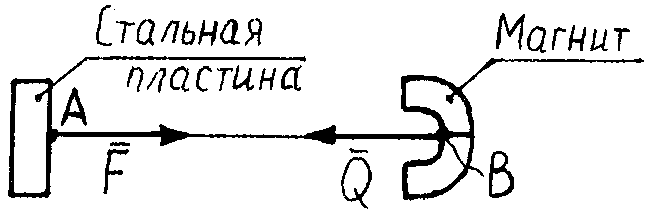 Стальная
пластина
Магнит
A
F̅
Q̅
B